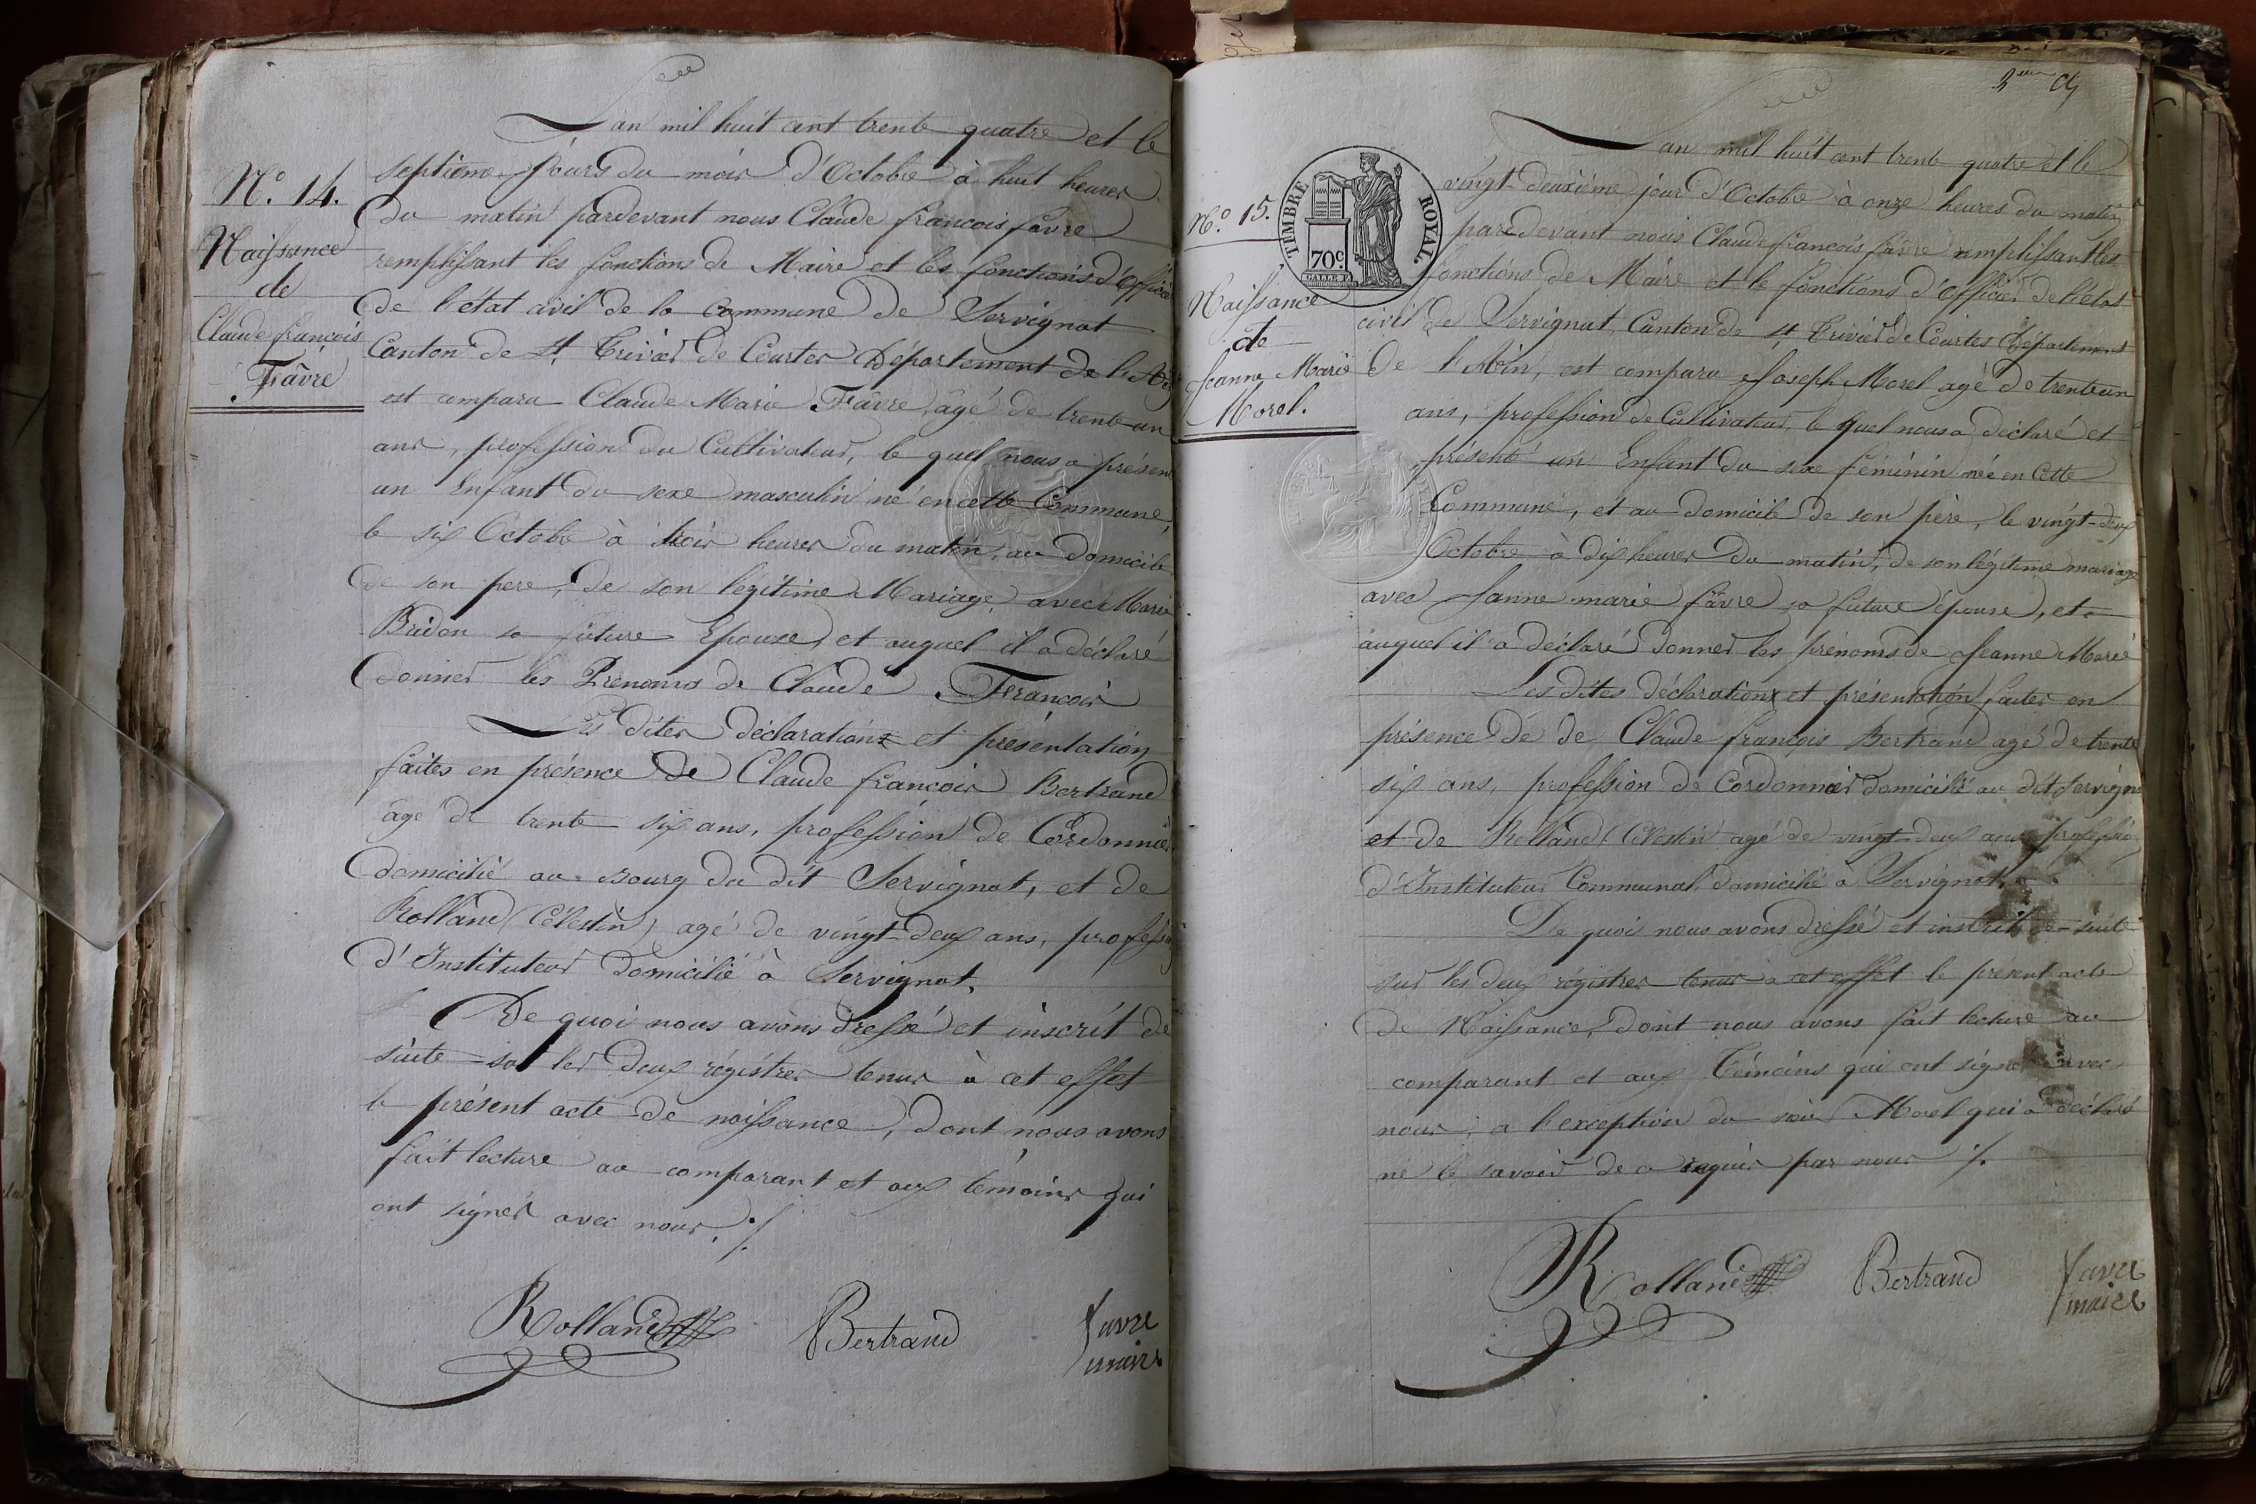 N.º 14.
Naissance
de
Claude françois
Fâvre
L'an mil huit cent trente quatre et le
septième jours du mois d'Octobre à huit heures
du matin pardevant nous Claude françois favre
remplissant les fonctions de Maire et les fonctions d'officier
de l'état civil de la commune de Servignat
Canton de St Trivier de Courtes Département de l'Ain
est comparu Claude Marie Fâvre, âgé de trente un
ans, profession du Cultivateur, le quel nous a présenté
un Enfant du sexe masculin né en cette Commune,
le six Octobre à trois heures du matin, au domicile
de son pere, de son légitime Mariage, avec Marie
Bridon sa future Epouse, et auquel il a déclaré
donner les Prenoms de Claude François
Les dites déclarations et présentation
faites en présence de Claude françois Bertrand
âgé de trente six ans, profession de Cordonnier
domicilié au Bourg du dit Servignat, et de
Rolland (Célestin) agé de vingt-deux ans, profession
d'Instituteur domicilié à Servignat.
De quoi nous avons dressé et inscrit de
suite sur les deux régistres tenus à cet effet
le présent acte de naissance, dont nous avons
fait lecture au comparant et aux témoins qui
ont signés avec nous ./.
Rolland Bertrand favre
maire
N.º 15.
Naissance
de
Jeanne Marie
Morel.
TIMBRE ROYAL.
70c.
L'an mil huit cent trente quatre et le
vingt-deuxième jour d'Octobre à onze heures du matin
pardevant nous Claude françois favre remplissant les
fonctions de Maire et le fonctions d'officier de l'état
civil de Servignat, Canton de St Trivier de Courtes Département
de l'Ain, est comparu Joseph Morel agé de trente un
ans, profession de Cultivateur, le quel nous a déclaré et
présenté un Enfant du sexe féminin né en Cette
Commune, et au domicile de son père, le vingt-deux
Octobre à dix heures du matin, de son légitime mariage
avec Janne marie fâvre sa future épouse, et
auquel il a déclaré donner les prénoms de Jeanne Marie
Les dites déclarations et présentation, faites en
présence dé de Claude françois Bertrand agé de trente
six ans, profession de Cordonnier domicilié au dit Servignat
et de Rolland (Célestin) agé de vingt-deux ans profession
d'Instituteur Communal, domicilié à Servignat.
De quoi nous avons dressé et inscrit de suite
sur les deux régistres tenus à cet effet le présent acte
de Naissance, dont nous avons fait lecture au
comparant et aux Témoins qui ont signés avec
nous, a l'exception du sieur Morel qui a déclaré
ne le savoir de ce requis par nous ./.
Rolland Bertrand favre
maire